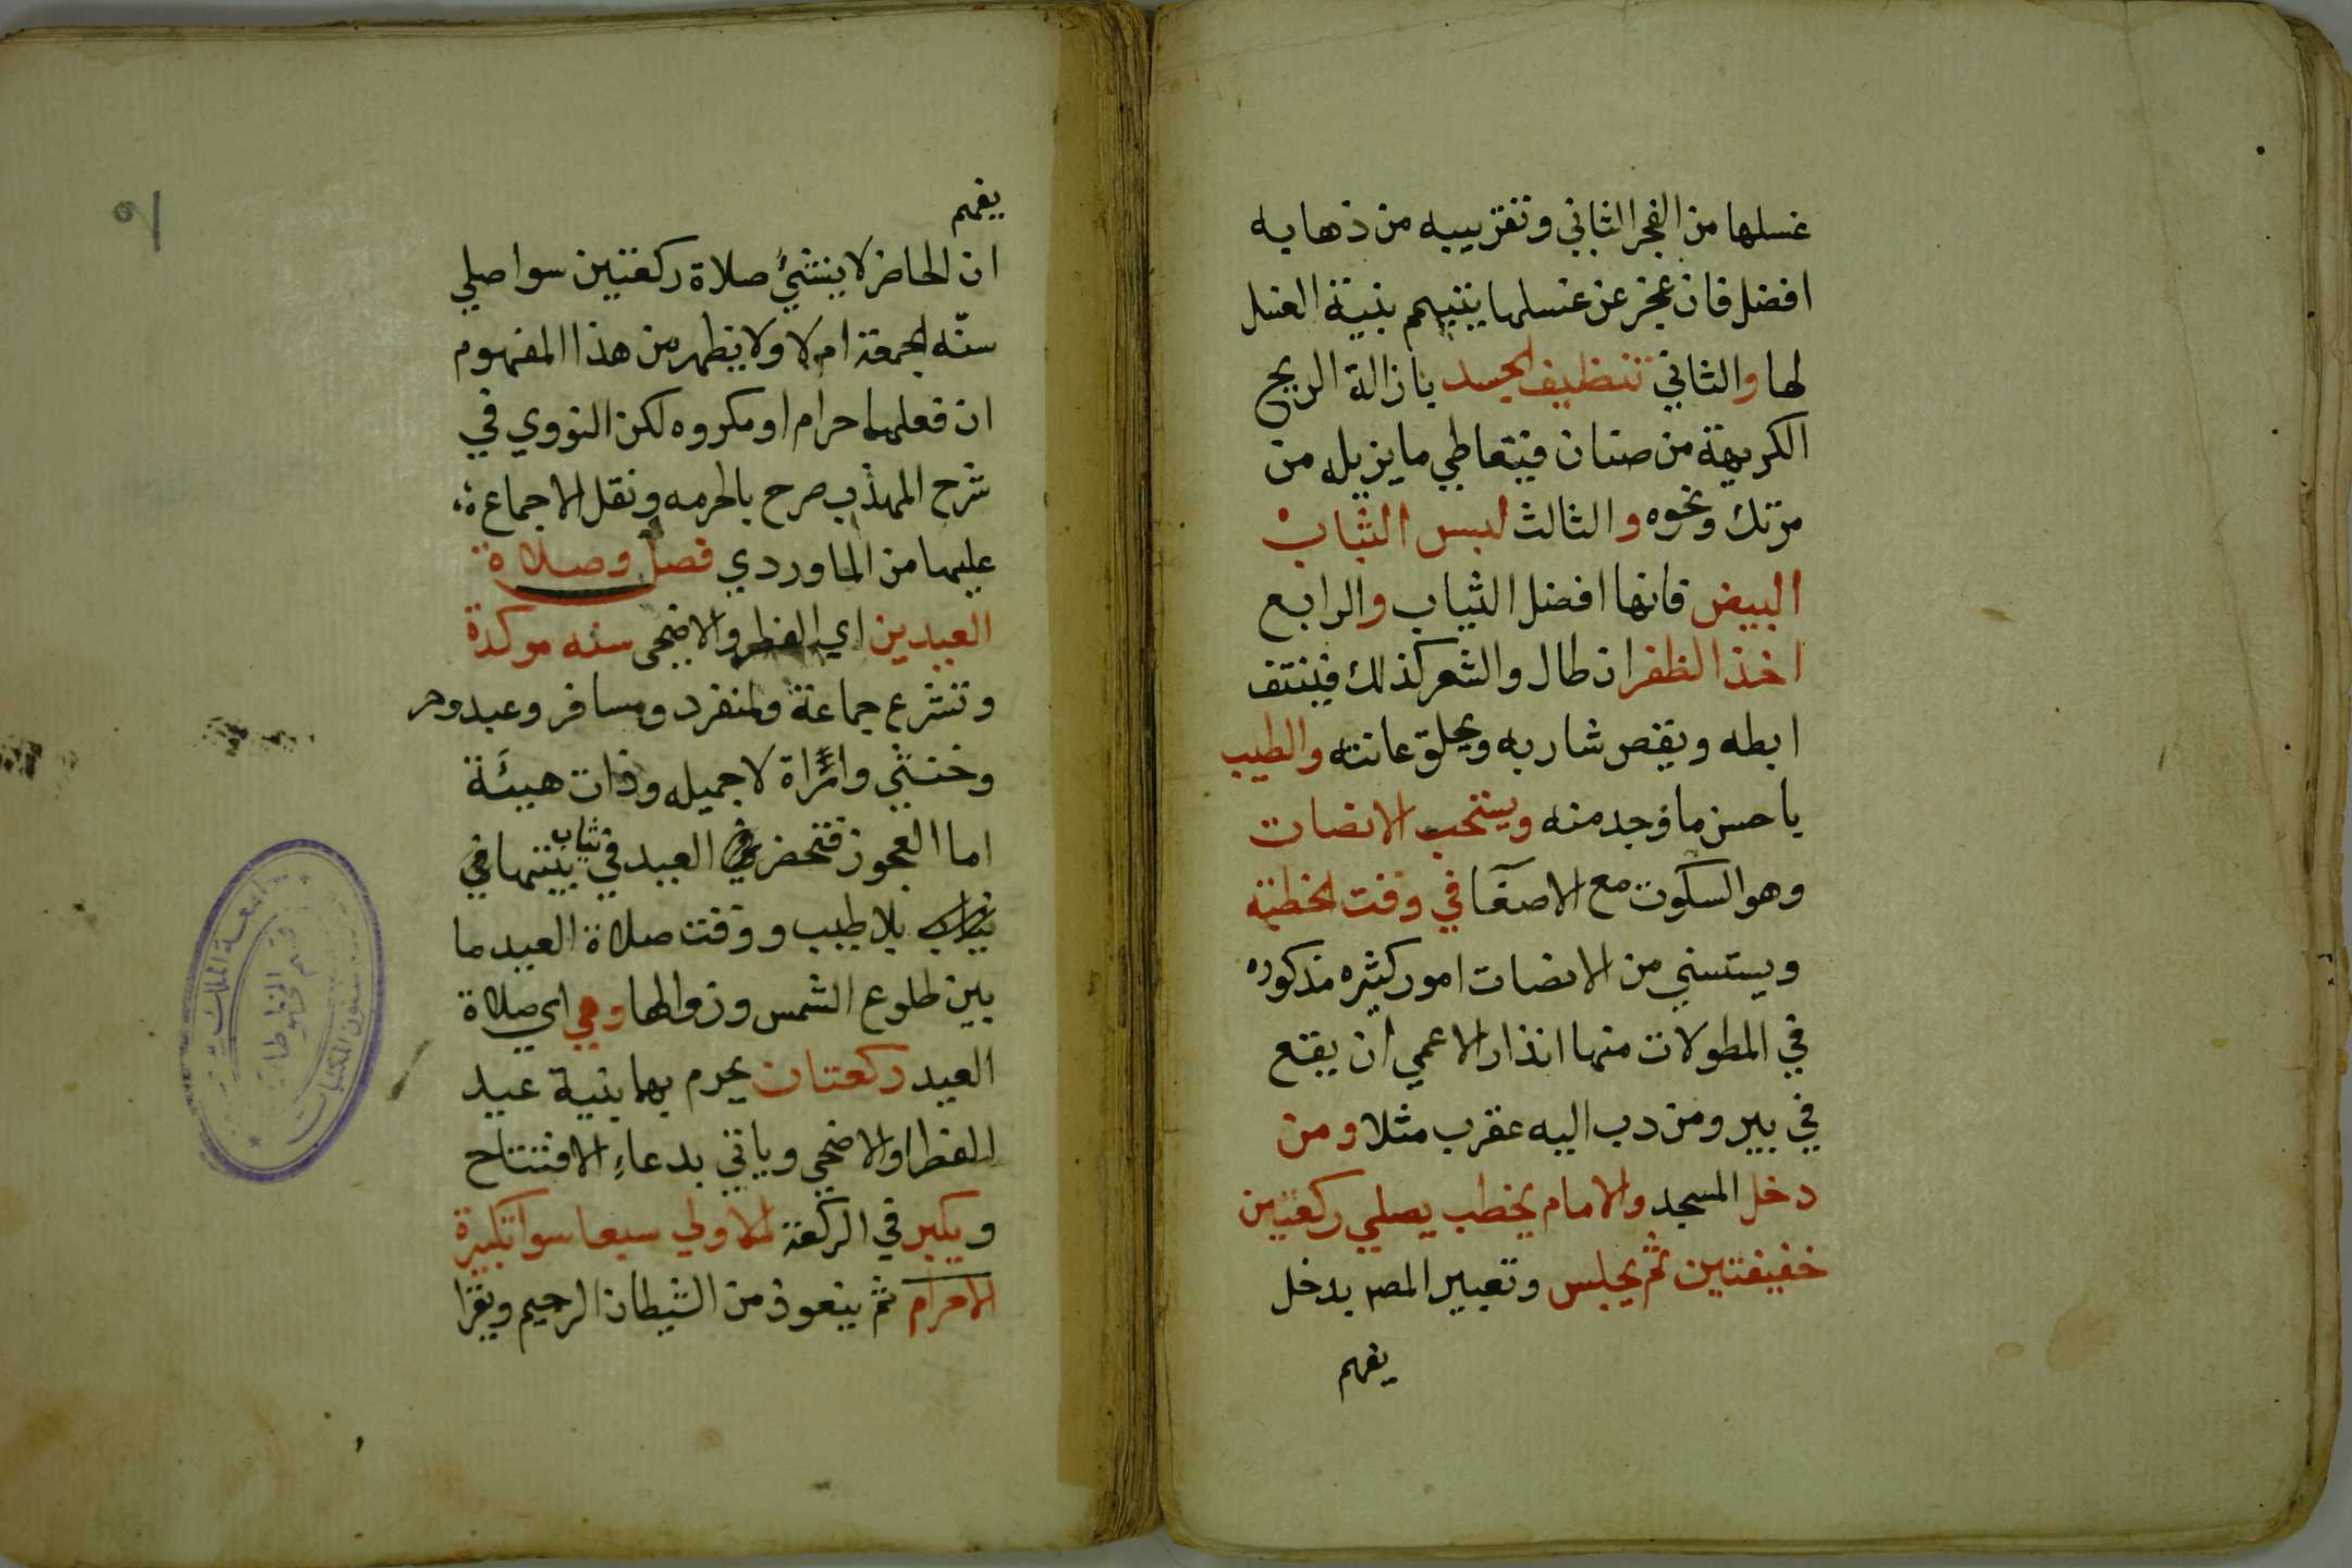 غسلها من الفجر الثاني وتقريبه من ذهابه
افضل فان عجز عن غسلها يتيمم بنية الغسل
لها والثاني تنظيف الجسد بازالة الريح
الكريهة من صنان فيتعاطي ما يزيله من
مرتك ونحوه والثالث لبس الثياب
البيض فانها افضل الثياب والرابع
اخذ الظفر ان طال والشعر كذلك فينتف
ابطه ويقص شاربه ويحلق عانته والطيب
باحسن ما وجد منه ويستحب الانصات
وهو السكوت مع الاصغا في وقت الخطبة
ويستسني من الانصات امور كثيره مذكوره
في المطولات منها انذار الاعمي ان يقع
في بير ومن دب اليه عقرب مثلا ومن
دخل المسجد والامام يخطب يصلي ركعتين
خفيفتين ثم يجلس وتعبير المصر بدخل
يفهم
يفهم
ان الحاضر لا ينشئ صلاة ركعتين سوا صلي
سنّه الجمعة ام لا ولا يظهر من هذا المفهوم
ان فعلهما حرام او مكروه لكن النووي في
شرح المهذب صرح بالحرمه ونقل الاجماع
عليها من الماوردي فصل وصلاة
العيدين اي الفطر والاضحى سنه موكدة
وتشرع جماعة ولمنفرد ومسافر وعبد وحر
وخنثي وامراة لا جميله وذات هيئة
اما العجوز فتحضر العيد في ثياب بيتها في
بلا طيب ووقت صلاة العيد ما
بين طلوع الشمس وزوالها وهي اي صلاة
العيد ركعتان يحرم بهما بنية عيد
الفطر او الاضحي وياتي بدعاء الافتتاح
ويكبر في الركعة الاولي سبعا سوا تكبيرة
الاحرام ثم يتعوذ من الشيطان الرجيم ويقرا
قسم المخطوطات